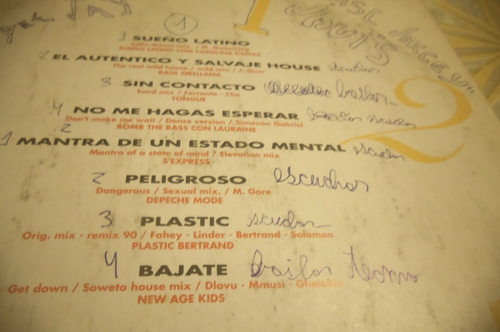 1
1 SUEÑO LATINO
SUEÑO LATINO CON CAROLINA DAMAS
2 EL AUTENTICO Y SALVAJE HOUSE
The real wild house / wild mix /
RAUL ORELLANA
3 SIN CONTACTO bailar
hard mix / Ferrante - Elia
TONGUE
4 NO ME HAGAS ESPERAR
Don't make me wait / Dance version / Simenon Gabriel
BOMB THE BASS CON LAURAINE
2
1 MANTRA DE UN ESTADO MENTAL escuchar
Mantra of a state of mind / Elevation mix
S'EXPRESS
2 PELIGROSO escuchar
Dangerous / Sexual mix. / M. Gore
DEPECHE MODE
3 PLASTIC
Orig. mix - remix 90 / Fahey - Linder - Bertrand - Solomon
PLASTIC BERTRAND
4 BAJATE bailar
Get down / Soweto house mix / Dlovu - Mmusi -
NEW AGE KIDS
2